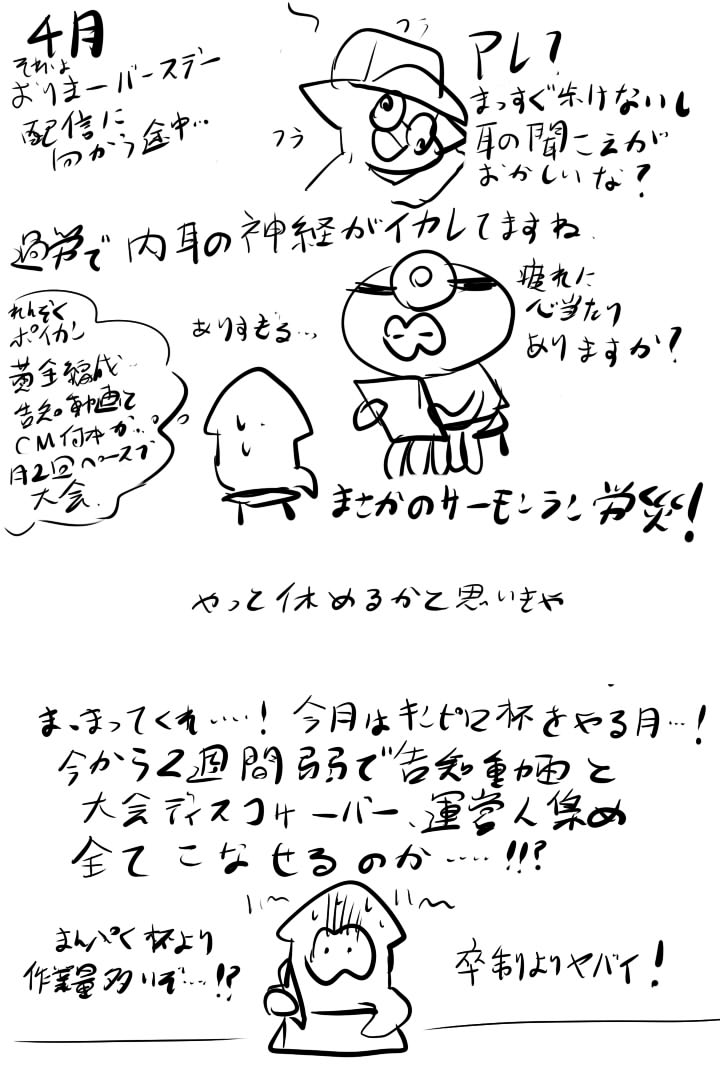 4月
それは
おりまーバースデー
配信に
向かう途中…
フラ
フラ
アレ?
まっすぐ歩けないし
耳の聞こえが
おかしいな?
過労で内耳の神経がイカレてますね
疲れに
心当たり
ありますか?
ありすぎる…
れんぞく
ポイカン
黄金編成…
告知動画て
CM何本か…
月2回ペースで
大会
まさかのサーモンラン労災!
やって休めるかと思いきや
ま、まってくれ……! 今月はキンピロ杯をやる月…!
今から2週間弱で告知動画と
大会ディスコサーバー、運営人集め
全てこなせるのか……!!?
まんぱく杯より
作業量多いぞ…!?
卒制よりヤバイ!